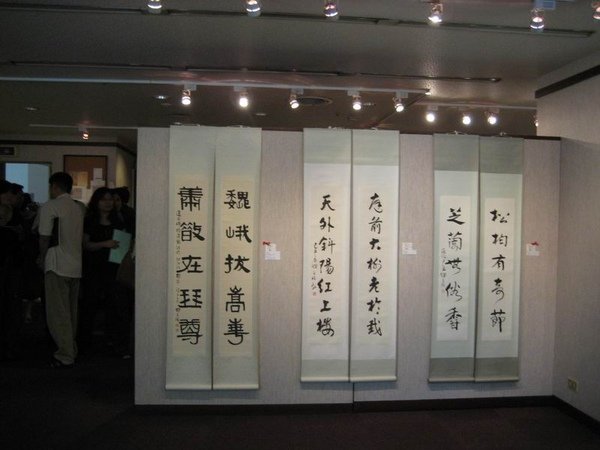 松柏有奇節
芝蘭無俗香
庭前大樹老於我
天外斜陽紅上樓
巍峨拔嵩華
肅歛在珪尊